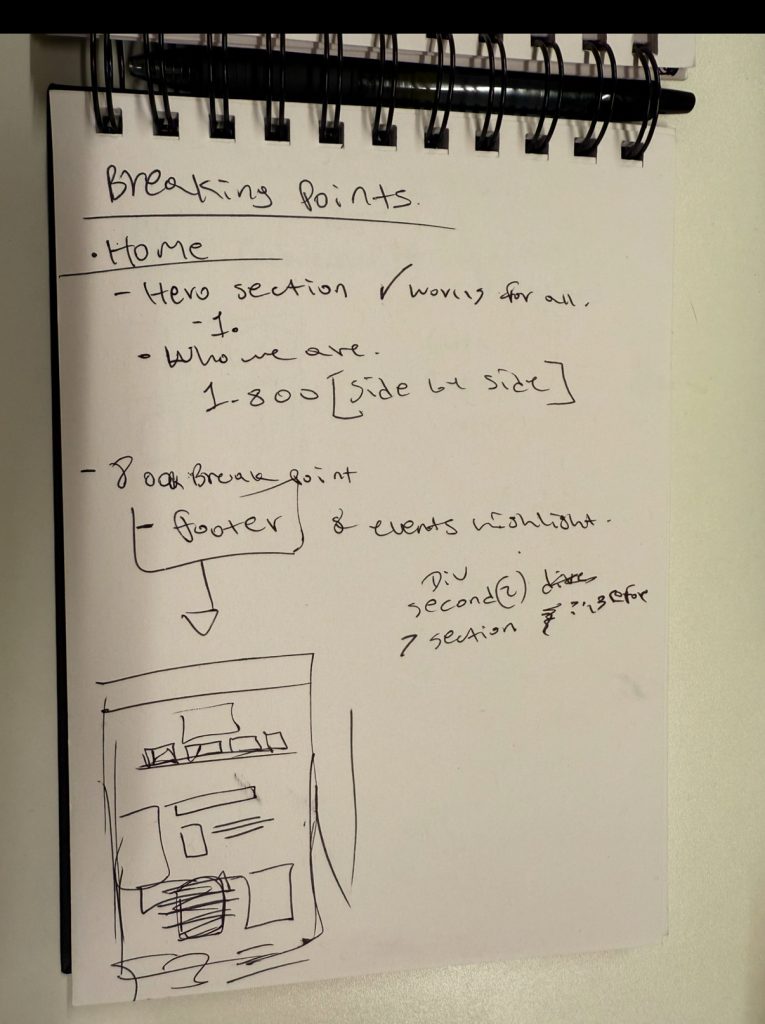 Breaking Points.
• Home
- Hero section ✓ works for all.
- 1.
• Who we are.
1-800 [side by side]
- 800 Break point
- footer & events highlight.
Div
second(2)
7 section